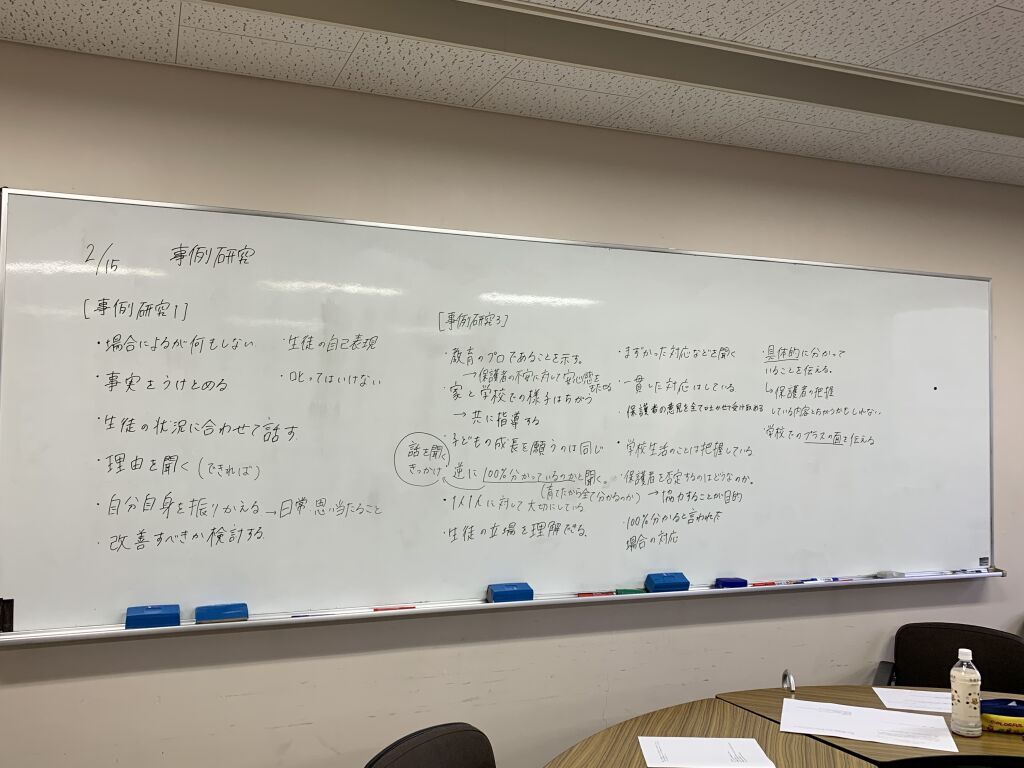 2/15 事例研究
[事例研究1]
・場合によるが何もしない
・生徒の自己表現
・事実をうけとめる
・叱ってはいけない
・生徒の状況に合わせて話す
・理由を聞く(できれば)
・自分自身を振りかえる→日常思い当たること
・改善すべきか検討する
[事例研究3]
・教育のプロであることを示す。
→保護者の不安に対して安心感をもたせる
・家と学校での様子はちがう
→共に指導する
・子どもの成長を願うのは同じ
話を聞く
きっかけ
・逆に100%分かっているのかと聞く。
(育てたから全て分かるのか)
・1人1人に対して大切にしている
・生徒の立場を理解できる
・まずかった対応などを聞く
・一貫した対応はしている
・保護者の意見を全てはき出させて受け止める
・学校生活のことは把握している
・保護者を否定するのはどうなのか。
→協力することが目的
・100%分かると言われた
場合の対応
・具体的に分かって
いることを伝える。
↳保護者の把握
している内容とちがうかもしれない
・学校でのプラスの面を伝える